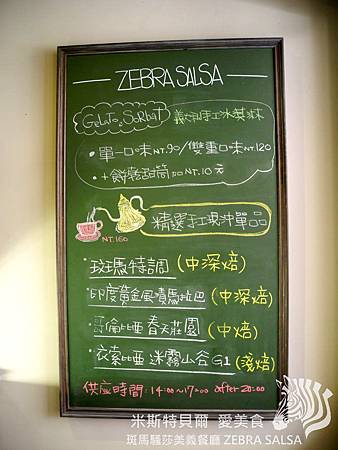 ZEBRA SALSA
GeLaTo. SorbaT 義大利手工冰淇淋
• 單一口味NT.90/雙重口味NT.120
• +餅乾甜筒加NT.10元
精選手工現沖單品
NT.160
• 斑瑪特調 (中深焙)
• 印度黃金風漬馬拉巴 (中深焙)
• 哥倫比亞 春天莊園 (中焙)
• 衣索比亞 迷霧山谷G1 (淺焙)
供应時間: 14:00~17:00 after 20:00
米斯特貝爾 愛美食
斑馬騷莎美義餐廳 ZEBRA SALSA